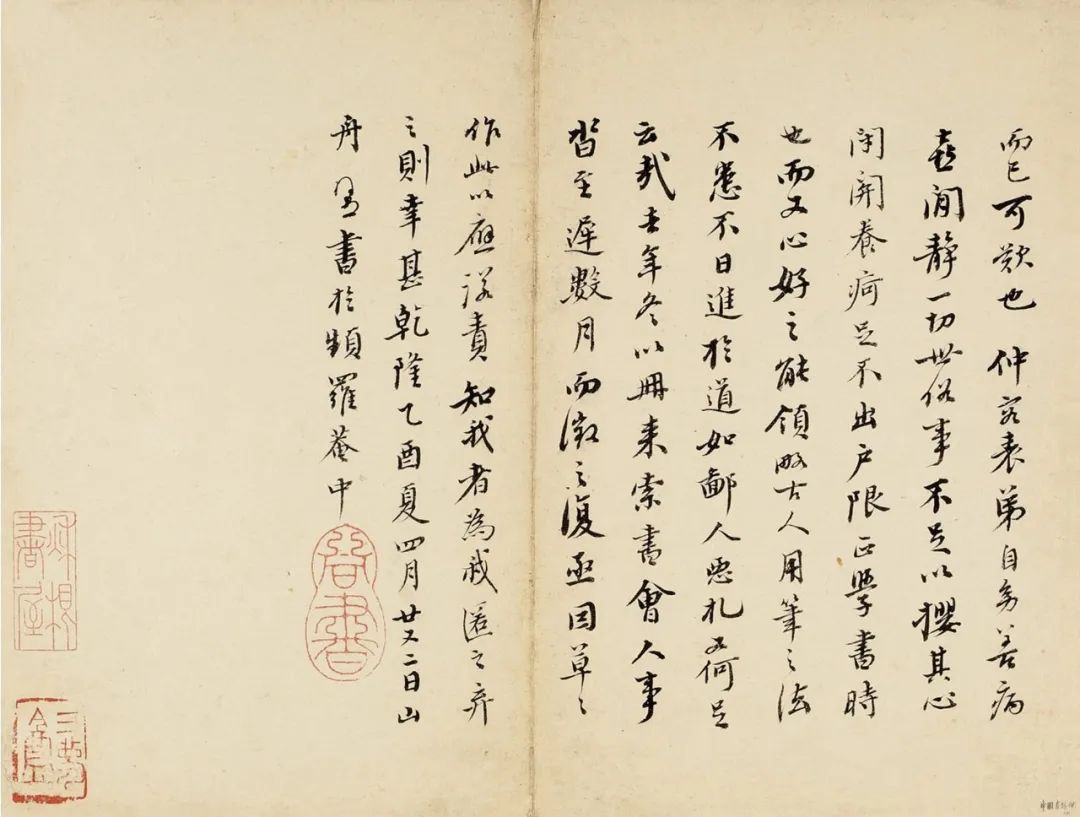 而已可歎也仲容表弟自多善病
喜閒靜一切世俗事不足以攖其心
閉關養疴足不出户限正學書時
也而又心好之能領略古人用筆之法
不患不日進於道如鄙人惡札又何足
云哉去年冬以冊來索書會人事
沓至遲數月而徵之復亟因草〻
作此以應諾責知我者為我匿之弃
之則幸甚乾隆乙酉夏四月廿又二日山
舟同書於頻羅菴中